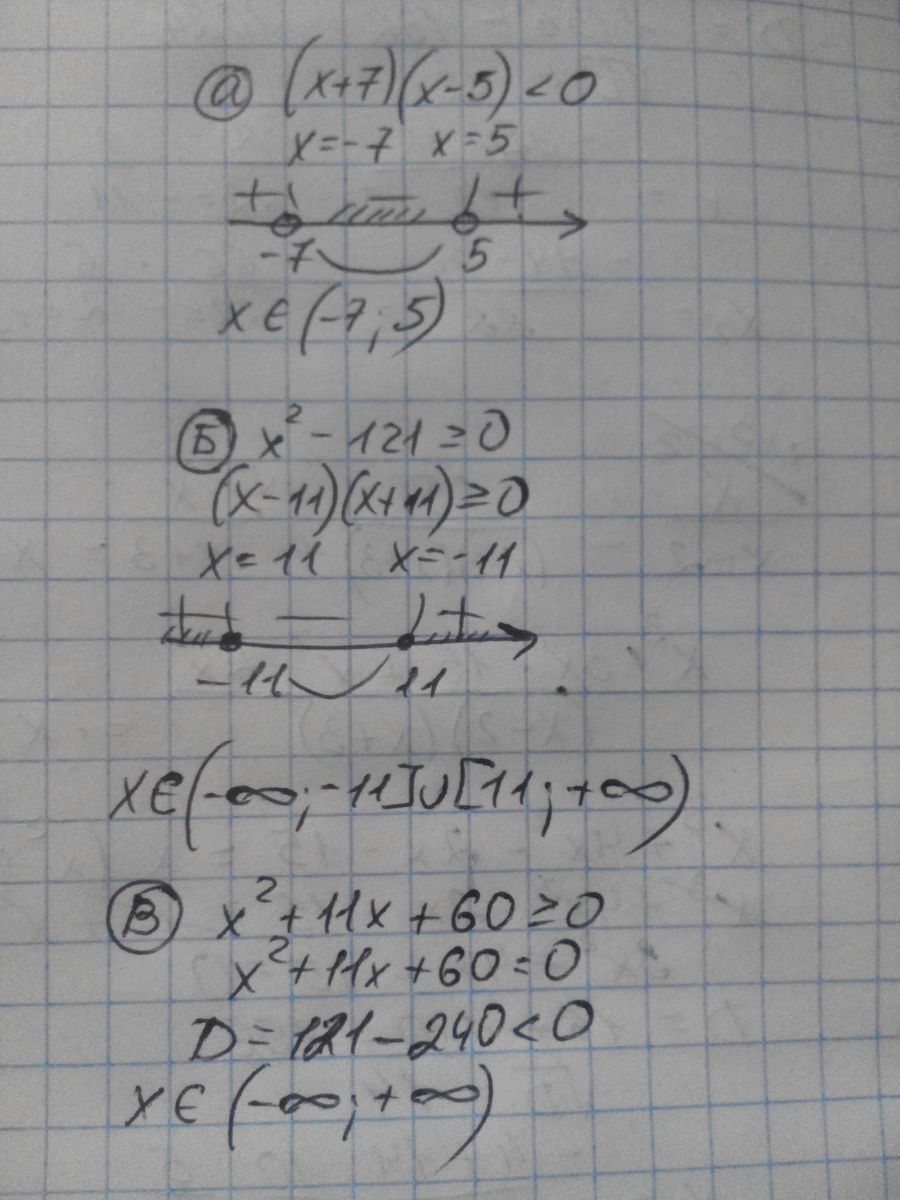 а (x+7)(x-5) < 0
x=-7 x=5
+ − +
-7 5
x ∈ (-7; 5)
Б x² - 121 ≥ 0
(x-11)(x+11) ≥ 0
x = 11 x = -11
+ − +
-11 11
x ∈ (-∞; -11] ∪ [11; +∞)
В x² + 11x + 60 ≥ 0
x² + 11x + 60 = 0
D = 121 - 240 < 0
x ∈ (-∞; +∞)